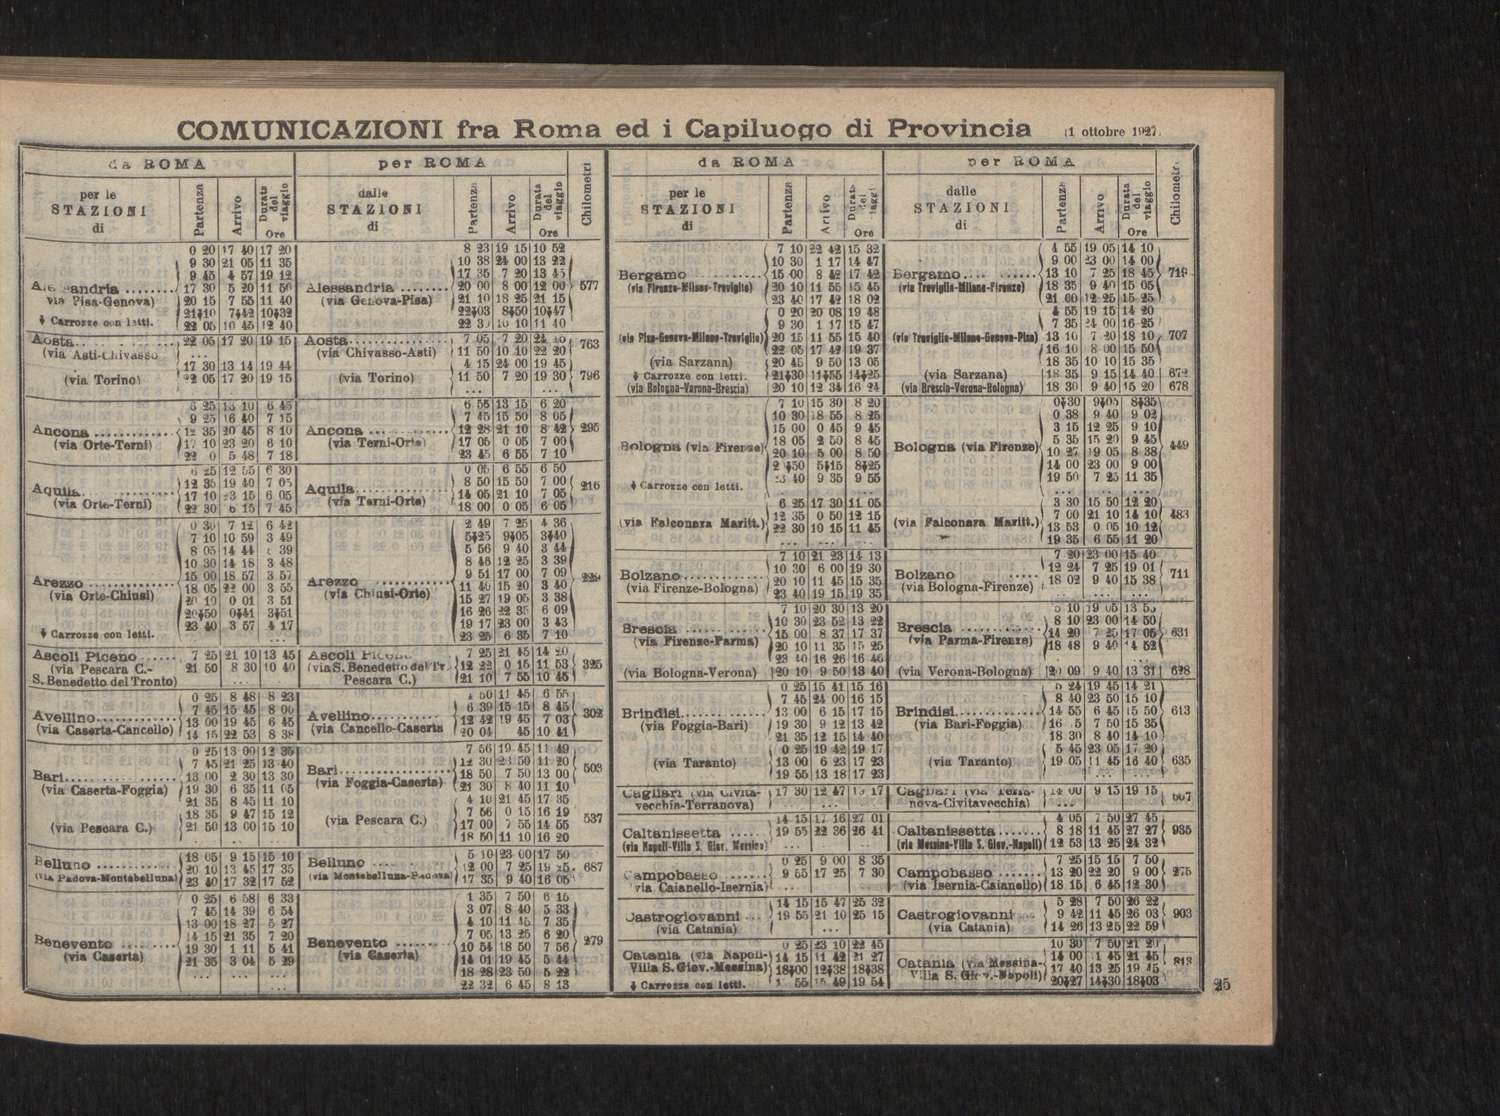 COMUNICAZIONI fra Roma ed i Capiluogo di Provincia (1 ottobre 1927)
da ROMA
per le STAZIONI di | Partenza | Arrivo | Durata del viaggio Ore
per ROMA
dalle STAZIONI di | Partenza | Arrivo | Durata del viaggio Ore | Chilometri
0 20 | 17 40 | 17 20 | 8 23 | 19 15 | 10 52
9 30 | 21 05 | 11 35 | 10 38 | 24 00 | 13 22
9 45 | 4 57 | 19 12 | 17 35 | 7 20 | 13 45
17 30 | 5 20 | 11 50 | Alessandria (via Genova-Pisa) | 20 00 | 8 00 | 12 00 | 577
(via Pisa-Genova) 20 15 | 7 55 | 11 40 | 21 10 | 18 25 | 21 15
Carrozze con letti. 21 10 | 7 42 | 10 32 | 22 03 | 8 50 | 10 47
22 05 | 10 45 | 12 40
Aosta (via Asti-Chivasso) 22 05 | 17 20 | 19 15 | Aosta (via Chivasso-Asti) | 7 05 | 7 20 | 763
11 50 | 10 10 | 22 20
17 30 | 13 14 | 19 44 | 4 15 | 24 00 | 19 45
(via Torino) 22 05 | 17 20 | 19 15 | (via Torino) | 11 50 | 7 20 | 19 30 | 796
6 25 | 13 10 | 6 45 | 6 55 | 13 15 | 6 20
9 25 | 16 40 | 7 15 | 7 45 | 15 50 | 8 05
Ancona (via Orte-Terni) 12 35 | 20 45 | 8 10 | Ancona (via Terni-Orte) | 12 28 | 21 10 | 8 42 | 295
17 10 | 23 20 | 6 10 | 17 05 | 0 05 | 7 00
22 0 | 5 48 | 7 18 | 23 45 | 6 55 | 7 10
6 25 | 12 55 | 6 30 | 0 05 | 6 55 | 6 50
Aquila (via Orte-Terni) 12 35 | 19 40 | 7 05 | Aquila (via Terni-Orte) | 8 50 | 15 50 | 7 00 | 216
17 10 | 23 15 | 6 05 | 14 05 | 21 10 | 7 05
22 30 | 6 15 | 7 45 | 18 00 | 0 05 | 6 05
0 30 | 7 12 | 6 42 | 2 49 | 7 25 | 4 36
7 10 | 10 59 | 3 49 | 5 25 | 9 05 | 3 40
8 05 | 14 44 | 5 56 | 9 40 | 3 44
10 30 | 14 18 | 3 48 | 8 46 | 12 25 | 3 39
Arezzo (via Orte-Chiusi) 15 00 | 18 57 | 3 57 | Arezzo (via Chiusi-Orte) | 9 51 | 17 00 | 7 09
18 05 | 22 00 | 3 55 | 11 40 | 15 20 | 3 40
20 10 | 0 01 | 3 51 | 15 27 | 19 05 | 3 38
20 50 | 0 41 | 3 51 | 16 26 | 22 35 | 6 09
23 40 | 3 57 | 4 17 | 19 17 | 23 00 | 3 43
Carrozze con letti. | 23 25 | 6 35 | 7 10
Ascoli Piceno (via Pescara C.- S. Benedetto del Tronto) 7 25 | 21 10 | 13 45 | Ascoli (via S. Benedetto del Tr. Pescara C.) | 7 25 | 21 45 | 14 20
21 50 | 8 30 | 10 40 | 12 22 | 0 15 | 11 53 | 325
21 10 | 7 55 | 10 45
0 25 | 8 48 | 8 23 | 11 45 | 6 55
Avellino (via Caserta-Cancello) 7 45 | 15 45 | 8 00 | Avellino (via Cancello-Caserta | 6 39 | 15 15 | 8 45 | 302
13 00 | 19 45 | 6 45 | 12 42 | 19 45 | 7 03
14 15 | 22 53 | 8 38 | 20 04 | 45 | 10 41
0 25 | 13 00 | 12 35 | 7 56 | 19 45 | 11 49
Bari (via Caserta-Foggia) 7 45 | 21 25 | 13 40 | Bari (via Foggia-Caserta) | 12 30 | 23 50 | 11 20 | 503
13 00 | 2 30 | 13 30 | 18 50 | 7 50 | 13 00
19 30 | 6 35 | 11 05 | 21 30 | 8 40 | 11 10
21 35 | 8 45 | 11 10 | 4 10 | 21 45 | 17 35
(via Pescara C.) 18 35 | 9 47 | 15 12 | (via Pescara C.) | 7 56 | 0 15 | 16 19 | 537
21 50 | 13 00 | 15 10 | 17 00 | 7 55 | 14 55
18 50 | 11 10 | 16 20
Belluno (via Padova-Montebelluna) 18 05 | 9 15 | 15 10 | Belluno (via Montebelluna-Padova) | 5 10 | 23 00 | 17 50
20 10 | 13 45 | 17 35 | 12 00 | 7 25 | 19 25 | 687
23 40 | 17 32 | 17 52 | 17 35 | 9 40 | 16 05
0 25 | 6 58 | 6 33 | 1 35 | 7 50 | 6 15
7 45 | 14 39 | 6 54 | 3 07 | 8 40 | 5 33
13 00 | 18 27 | 5 27 | 4 10 | 11 45 | 7 35
Benevento (via Caserta) 14 15 | 21 35 | 7 20 | Benevento (via Caserta) | 7 05 | 13 25 | 6 20 | 279
19 30 | 1 11 | 5 41 | 10 54 | 18 50 | 7 56
21 35 | 3 04 | 5 29 | 14 01 | 19 45 | 5 44
18 28 | 23 50 | 5 22
22 32 | 6 45 | 8 13
da ROMA
per le STAZIONI di | Partenza | Arrivo | Durata del viaggio
per ROMA
dalle STAZIONI di | Partenza | Arrivo | Durata del viaggio Ore | Chilometri
7 10 | 22 42 | 15 32 | 4 55 | 19 05 | 14 10
10 30 | 1 17 | 14 47 | 9 00 | 23 00 | 14 00
Bergamo (via Firenze-Milano-Treviglio) 15 00 | 8 42 | 17 42 | Bergamo (via Treviglio-Milano-Firenze) | 13 10 | 7 25 | 18 45 | 719
20 10 | 11 55 | 15 45 | 18 35 | 9 40 | 15 05
23 40 | 17 42 | 18 02 | 21 00 | 12 25 | 15 25
0 20 | 20 08 | 19 48 | 4 55 | 19 15 | 14 20
9 30 | 1 17 | 15 47 | 7 35 | 24 00 | 16 25
(via Pisa-Genova-Milano-Treviglio) 20 15 | 11 55 | 15 40 | (via Treviglio-Milano-Genova-Pisa) | 13 10 | 7 20 | 18 10 | 707
22 05 | 17 42 | 19 37 | 16 10 | 8 00 | 15 50
(via Sarzana) 20 45 | 9 50 | 13 05 | 18 35 | 10 10 | 15 35
Carrozze con letti. 21 30 | 11 55 | 14 25 | (via Sarzana) | 18 35 | 9 15 | 14 40 | 672
(via Bologna-Verona-Brescia) 20 10 | 12 34 | 16 24 | (via Brescia-Verona-Bologna) | 18 30 | 9 40 | 15 20 | 678
7 10 | 15 30 | 8 20 | 0 30 | 9 05 | 8 35
10 30 | 18 55 | 8 25 | 0 38 | 9 40 | 9 02
15 00 | 0 45 | 9 45 | 3 15 | 12 25 | 9 10
Bologna (via Firenze) 18 05 | 2 50 | 8 45 | Bologna (via Firenze) | 5 35 | 15 20 | 9 45 | 449
20 10 | 5 00 | 8 50 | 10 27 | 19 05 | 8 38
5 15 | 8 25 | 14 00 | 23 00 | 9 00
Carrozze con letti. 23 40 | 9 35 | 9 55 | 19 50 | 7 25 | 11 35
6 25 | 17 30 | 11 05 | 3 30 | 15 50 | 12 20
(via Falconara Maritt.) 12 35 | 0 50 | 12 15 | (via Falconara Maritt.) | 7 00 | 21 10 | 14 10 | 483
22 30 | 10 15 | 11 45 | 13 53 | 0 05 | 10 12
19 35 | 6 55 | 11 20
7 10 | 21 23 | 14 13 | 7 20 | 23 00 | 15 40
Bolzano (via Firenze-Bologna) 10 30 | 6 00 | 19 30 | Bolzano (via Bologna-Firenze) | 12 24 | 7 25 | 19 01 | 711
20 10 | 11 45 | 15 35 | 18 02 | 9 40 | 15 38
23 40 | 19 15 | 19 35
7 10 | 20 30 | 13 20 | 5 10 | 19 05 | 13 55
Brescia (via Firenze-Parma) 10 30 | 23 52 | 13 22 | Brescia (via Parma-Firenze) | 8 10 | 23 00 | 14 50
15 00 | 8 37 | 17 37 | 14 20 | 7 25 | 17 05 | 631
20 10 | 11 35 | 15 25 | 18 48 | 9 40 | 14 52
23 40 | 16 26 | 16 46
(via Bologna-Verona) 20 10 | 9 50 | 13 40 | (via Verona-Bologna) | 20 09 | 9 40 | 13 31 | 628
0 25 | 15 41 | 15 16 | 5 24 | 19 45 | 14 21
7 45 | 24 00 | 16 15 | 8 40 | 23 50 | 15 10
Brindisi (via Foggia-Bari) 13 00 | 6 15 | 17 15 | Brindisi (via Bari-Foggia) | 14 55 | 6 45 | 15 50 | 613
19 30 | 9 12 | 13 42 | 16 5 | 7 50 | 15 35
21 35 | 12 15 | 14 40 | 18 30 | 8 40 | 14 10
0 25 | 19 42 | 19 17 | 5 45 | 23 05 | 17 20
(via Taranto) 13 00 | 6 23 | 17 23 | (via Taranto) | 19 05 | 11 45 | 16 40 | 635
19 55 | 13 18 | 17 23
Cagliari (via Civita- vecchia-Terranova) 17 30 | 12 47 | Cagliari (via Terra- nova-Civitavecchia) | 14 00 | 9 15 | 19 15
14 15 | 17 16 | 27 01 | 4 05 | 7 50 | 27 45
Caltanissetta (via Napoli-Villa S. Giov. Messina) 19 55 | 22 36 | 26 41 | Caltanissetta (via Messina-Villa S. Giov.-Napoli) | 8 18 | 11 45 | 27 27 | 935
12 53 | 13 25 | 24 32
0 25 | 9 00 | 8 35 | 7 25 | 15 15 | 7 50
Campobasso (via Caianello-Isernia) 9 55 | 17 25 | 7 30 | Campobasso (via Isernia-Caianello) | 13 20 | 22 20 | 9 00 | 275
18 15 | 6 45 | 12 30
14 15 | 15 47 | 25 32 | 5 28 | 7 50 | 26 22
Castrogiovanni (via Catania) 19 55 | 21 10 | 25 15 | Castrogiovanni (via Catania) | 9 42 | 11 45 | 26 03 | 903
14 26 | 13 25 | 22 59
0 25 | 23 10 | 22 45 | 10 30 | 7 50 | 21 20
Catania (via Napoli- Villa S. Giov.-Messina) 14 15 | 11 42 | 21 27 | Catania (via Messina- Villa S. Giov.-Napoli) | 14 00 | 11 45 | 21 45 | 813
18 00 | 12 38 | 18 38 | 17 40 | 13 25 | 19 45
Carrozze con letti. | 19 54 | 20 27 | 14 30 | 18 03
25